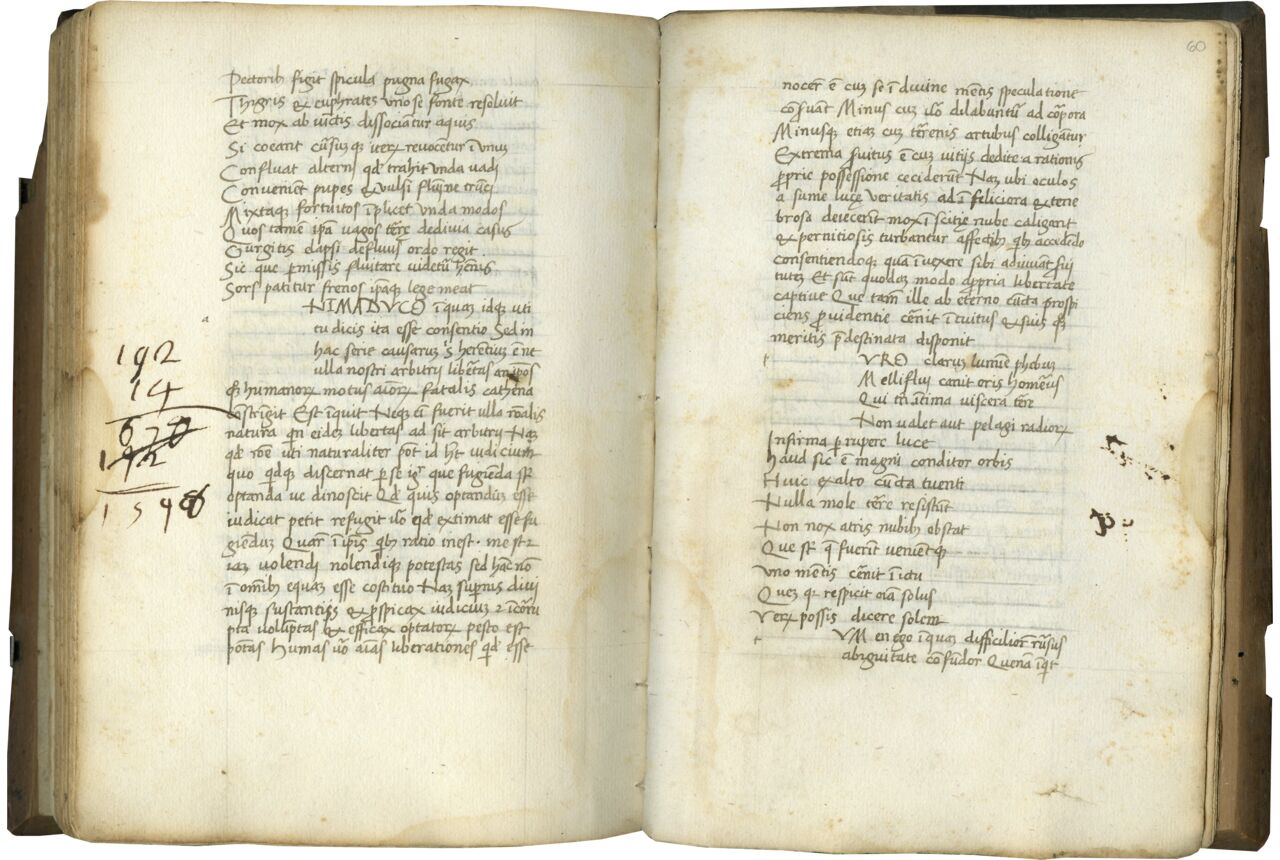 Pectorib figit spicula pugna fugax
Thigris & euphrates uno se fonte resoluit
Et mox ab iunctis dissociantur aquis
Si coeant cursumq; iterum reuocetur ī unum
Confluat alterni qd trahit unda uadi
Convenient pupes & uulsi flumine trunci
Mixtaq; fortuitos īplicet unda modos
Quos tamē ipa uagos terre decliuia casus
Gurgitis elapsi defluus ordo regit
Sic que pmissis fluitare uidetur habenis
Sors patitur frenos ipaq; lege meat
NIMADUCO īquaz idq; uti
tu dicis ita esse consentio Sed in
hac serie causarum s herentium ē nt
ulla nostri arbitrii libertas an ipos
q; humanorum motus aiorum fatalis cathena
constrigit Est inquit Neq; ei fuerit ulla ronalis
natura qn eidez libertas ad sit arbitrii Naz
qd rōe uti naturaliter pot id ht iudicium
quo qdq; discernat p se igr que fugienda st
optanda ue dinoscit Qd quis optandum esse
iudicat petit refugit uo qd extimat esse fu
giendum Quar ī ipis qb ratio inest inest
iaz uolendi nolendiq; potestas sed hac nō
ī omib equaz esse costituo Naz supnis diui
nisq; sustantiis & pspicax iudicium & īcoru
pta uoluntas & efficax optatorum pesto est
potas Humas uo aīas liberationes qd esse
192
14
670
192
1598
60
nocese ē cuz se ī diuine mentis speculatione
coseruant Minus cuz uo dilabuntur ad corpora
Minusq; etiaz cuz terrenis artubus colligantur
Extrema seruitus ē cuz uitiis dedite a rationis
proprie possessione ceciderunt Naz ubi oculos
a sume luce ueritatis ad īferiora & tene
brosa deiecerint mox ī scitie nube caligant
& pernitiosis turbantur affectib qb accededo
consentiendoq; quā īuexere sibi adiuuant serui
tutez Et sunt quodaz modo ppria libertate
captiue Que tam ille ab eterno cuncta prospi
ciens prouidentie cernit ītuitus & suis q;
meritis pdestinata disponit
t URO clarum lumine phebum
Melliflui canit oris homerus
Qui tn intima uiscera terre
Non ualet aut pelagi radiorum
Infirma prupere luce
Haud sic ē magni conditor orbis
Huic ex alto cuncta tuenti
Nulla mole terre resistunt
Non nox atris nubib obstat
Que st q fuerint uenientq;
Uno mentis cernit ī ictu
Quez qr respicit oīa solus
Uerum possis dicere solem
t UM en ego īquaz difficiliori rursus
abiguitate confundor Quenā īqt